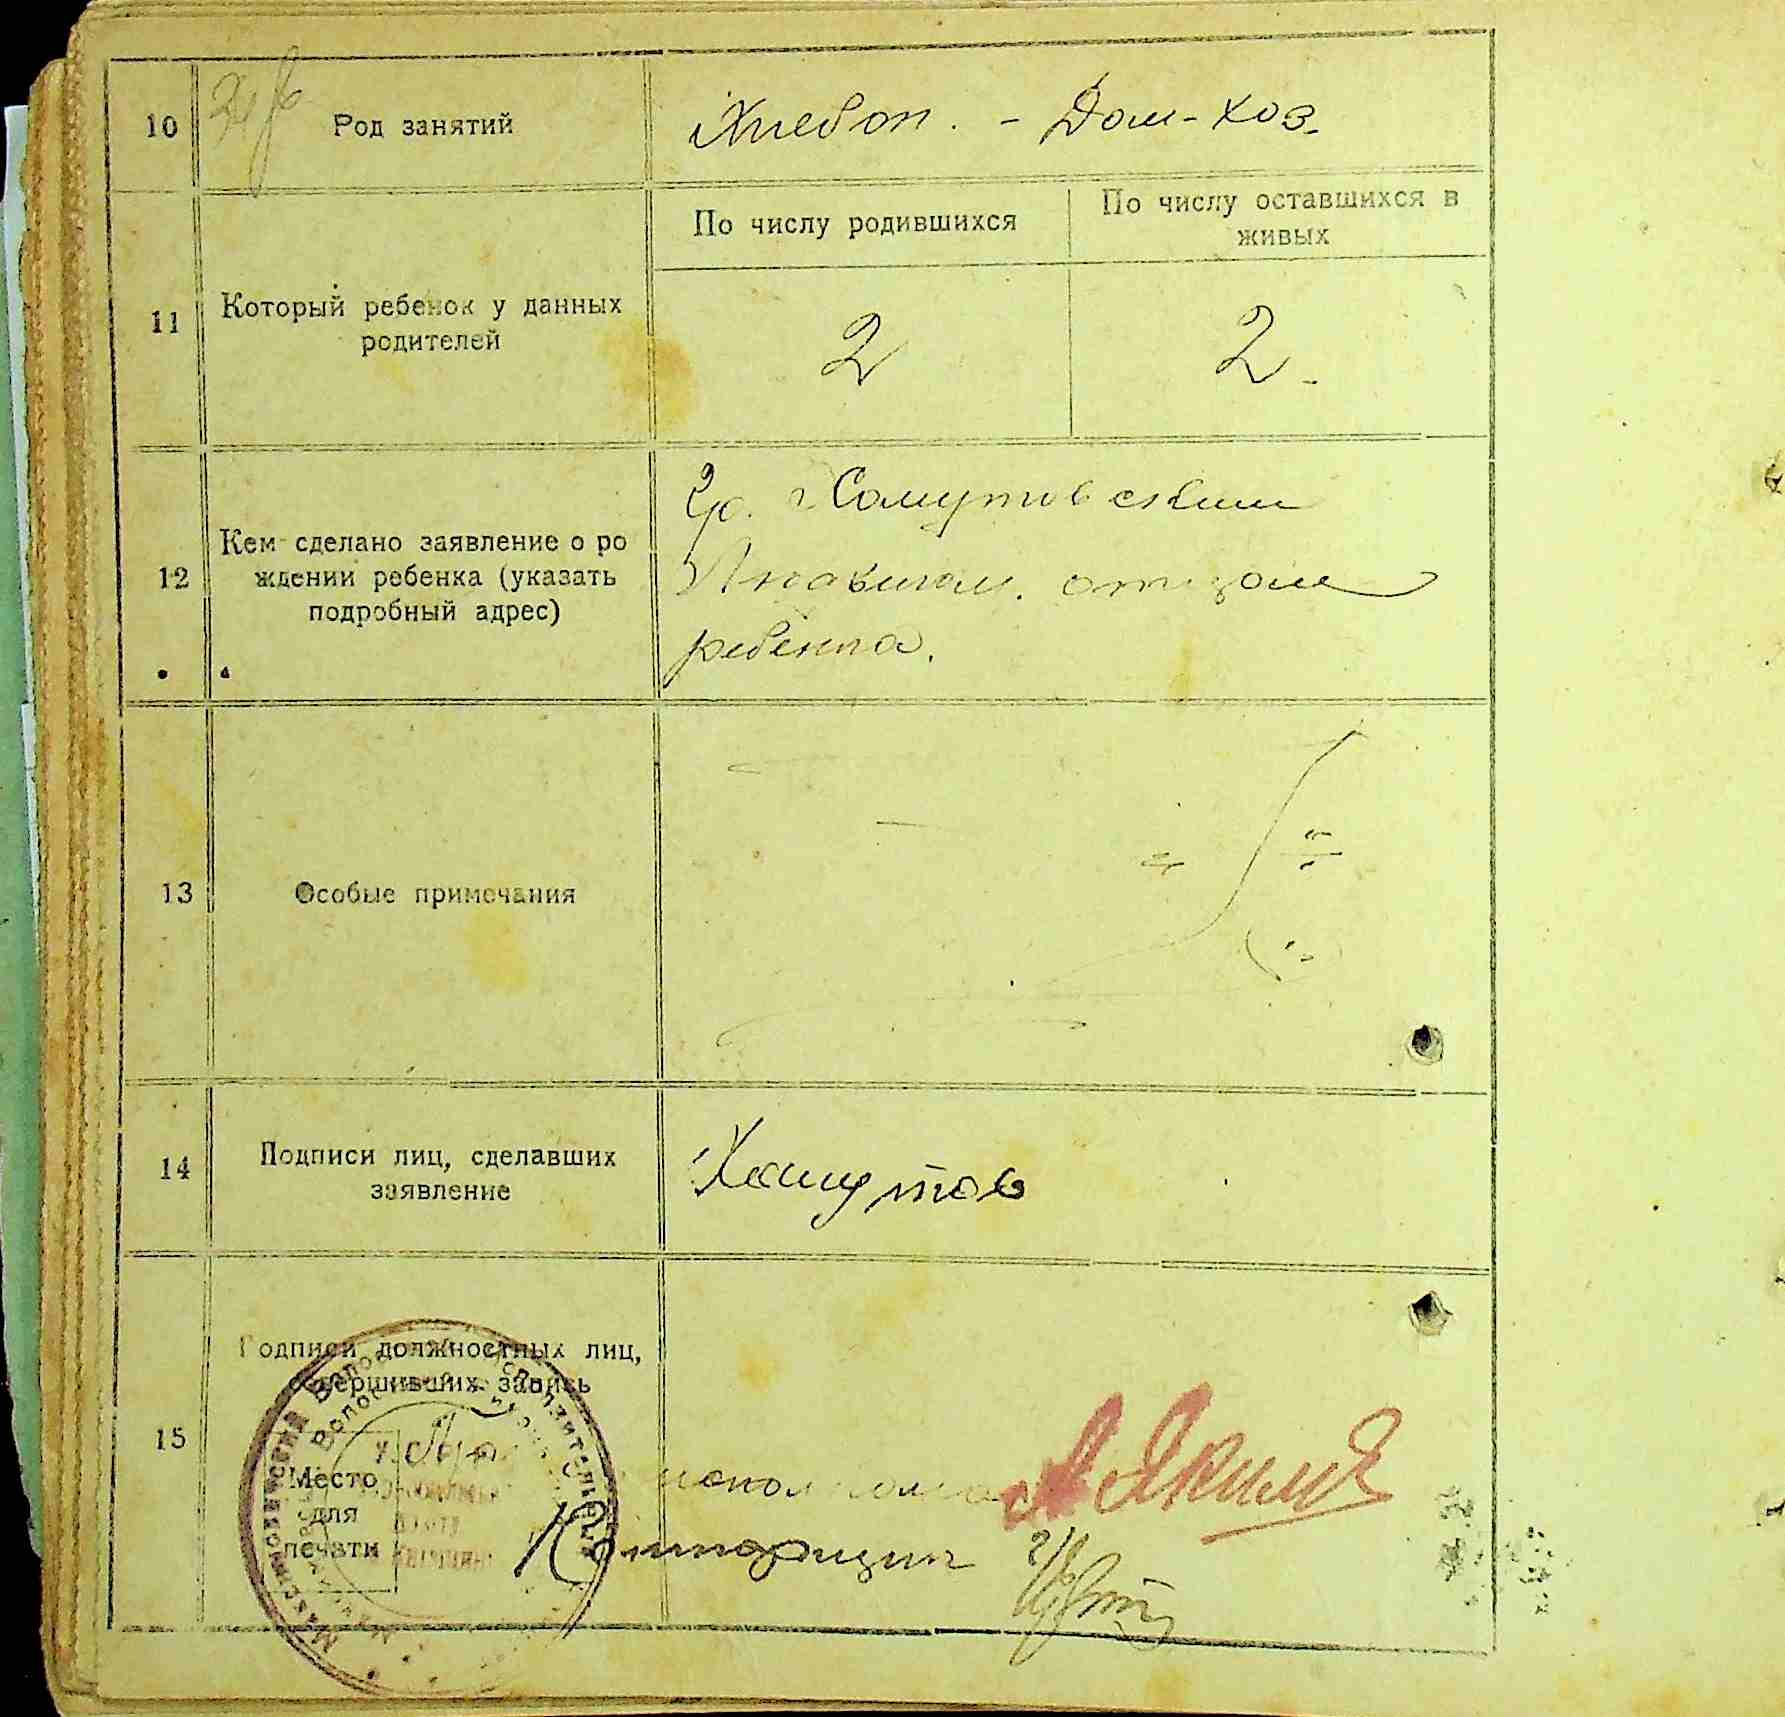 10
Род занятий
Хлебоп. - Дом-хоз.
11
Который ребенок у данных
родителей
По числу родившихся
По числу оставшихся в
живых
2
2.
12
Кем сделано заявление о ро
ждении ребенка (указать
подробный адрес)
Гр. Хомутовским
отцом
ребенка.
13
Особые примечания
14
Подписи лиц, сделавших
заявление
Хомутов
15
Подписи должностных лиц,
совершивших запись
Место
для
печати
исполкома